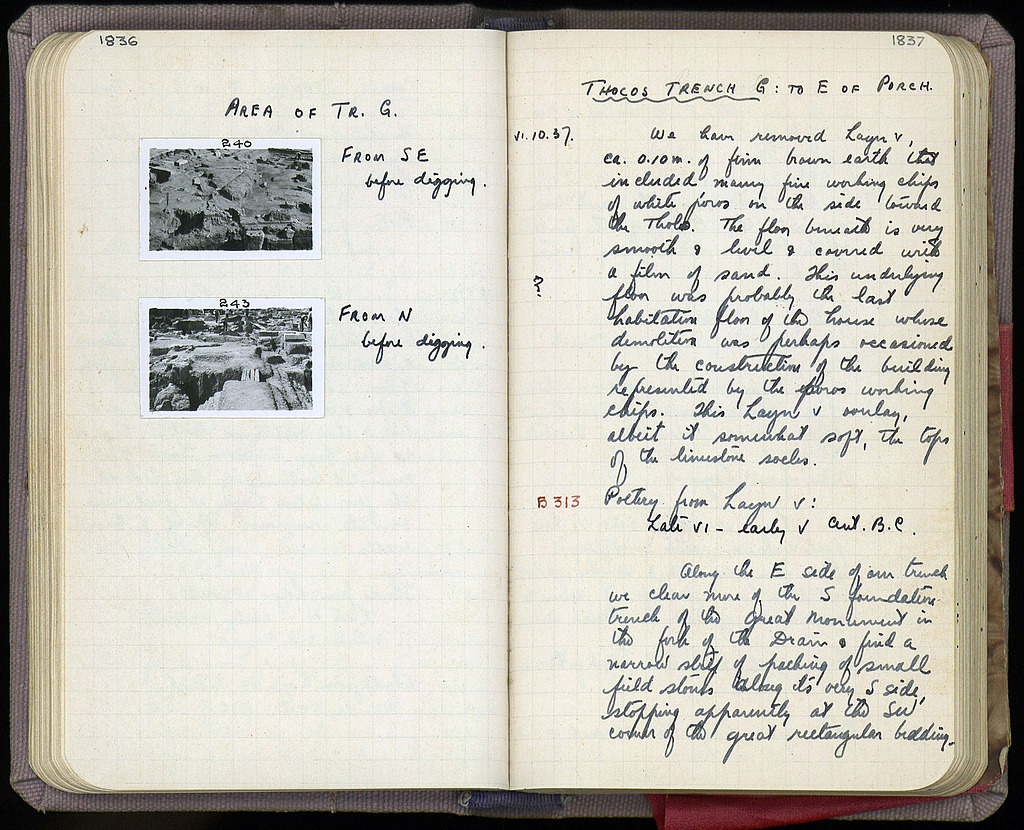 1836
AREA OF TR. G.
240
FROM SE
before digging.
243
FROM N
before digging.
1837
THOLOS TRENCH G: TO E OF PORCH.
VI.10.37. We have removed Layer V,
ca. 0.10 m. of firm brown earth that
included many fine working chips
of white poros on the side toward
the Tholos. The floor beneath is very
smooth & level & covered with
a film of sand. This underlying
? floor was probably the last
habitation floor of the house whose
demolition was perhaps occasioned
by the construction of the building
represented by the poros working
chips. This Layer V overlay,
albeit it somewhat soft, the tops
of the limestone socles.
B 313 Pottery from Layer V:
Late VI - early V cent. B.C.
Along the E side of our trench
we clear more of the S foundation
trench of the Great Monument in
the fork of the Drain & find a
narrow strip of packing of small
field stones along its very S side,
stopping apparently at the SW
corner of the great rectangular bedding.